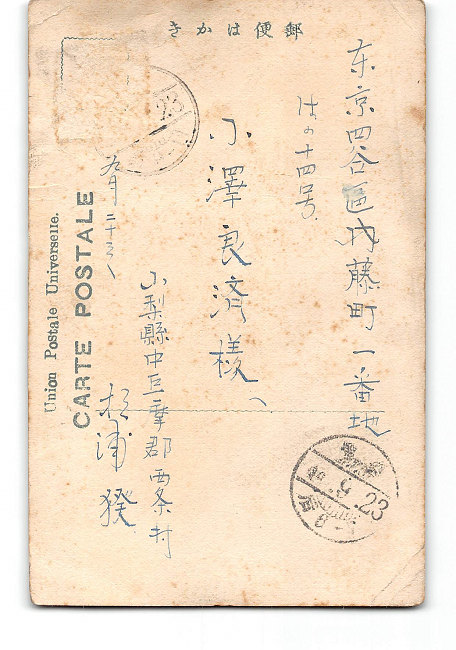 きかは便郵
东京四谷區内藤町一番地
はの十四号
小澤良済様
九月二十三
山梨縣中巨摩郡西条村
杉浦
Union Postale Universelle.
CARTE POSTALE
9.23
23